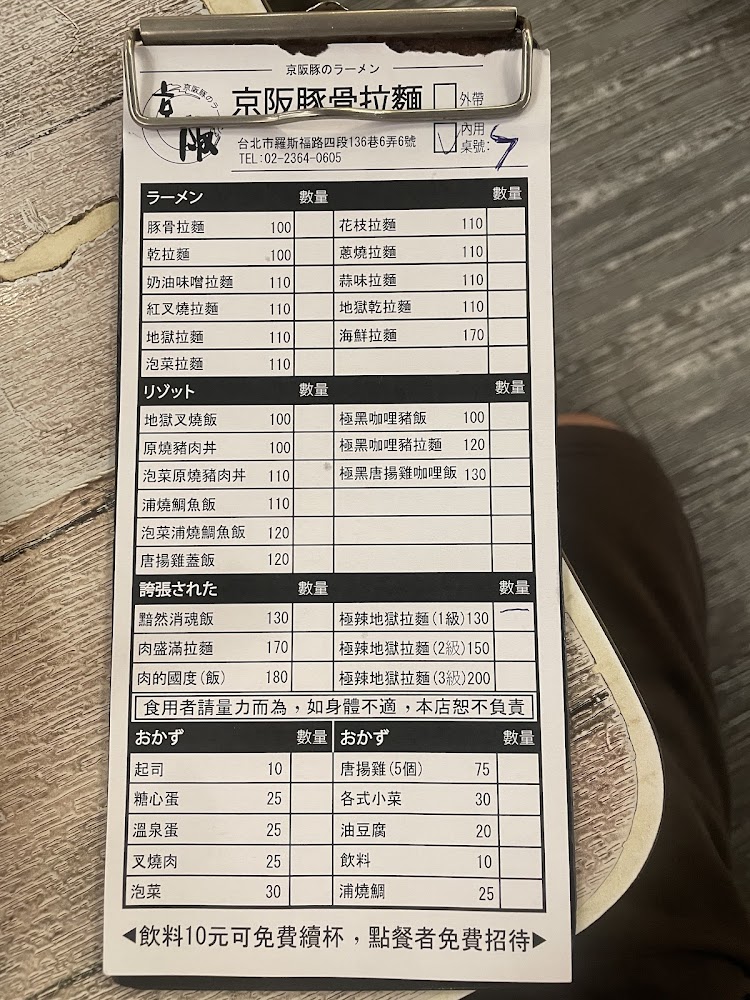 京阪豚のラーメン
京阪豚骨拉麵
外帶
內用
桌號:
京阪
台北市羅斯福路四段136巷6弄6號
TEL:02-2364-0605
ラーメン 數量 數量
豚骨拉麵 100 花枝拉麵 110
乾拉麵 100 蔥燒拉麵 110
奶油味噌拉麵 110 蒜味拉麵 110
紅叉燒拉麵 110 地獄乾拉麵 110
地獄拉麵 110 海鮮拉麵 170
泡菜拉麵 110
リゾット 數量 數量
地獄叉燒飯 100 極黑咖哩豬飯 100
原燒豬肉丼 100 極黑咖哩豬拉麵 120
泡菜原燒豬肉丼 110 極黑唐揚雞咖哩飯 130
浦燒鯛魚飯 110
泡菜浦燒鯛魚飯 120
唐揚雞蓋飯 120
誇張された 數量 數量
黯然消魂飯 130 極辣地獄拉麵(1級)130
肉盛滿拉麵 170 極辣地獄拉麵(2級)150
肉的國度(飯) 180 極辣地獄拉麵(3級)200
食用者請量力而為，如身體不適，本店恕不負責
おかず 數量 おかず 數量
起司 10 唐揚雞(5個) 75
糖心蛋 25 各式小菜 30
溫泉蛋 25 油豆腐 20
叉燒肉 25 飲料 10
泡菜 30 浦燒鯛 25
◀飲料10元可免費續杯，點餐者免費招待▶